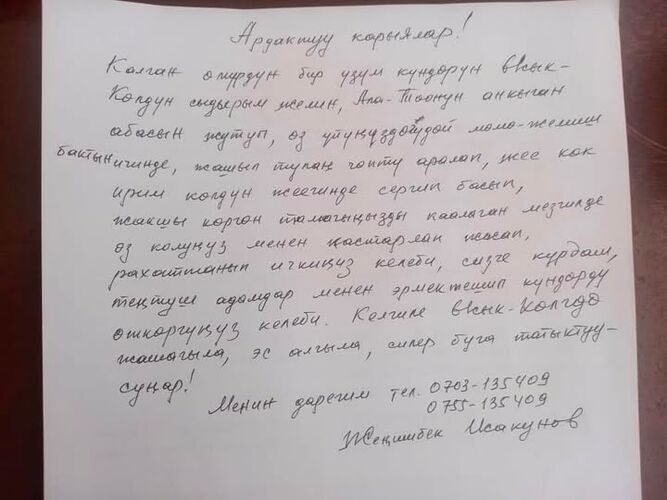 Ардактуу карыялар!
Калган өмүрдүн бир үзүм күндөрүн Ысык-
Көлдүн сыдырым желин, Ала-Тоонун анкыган
абасын жутуп, өз үйүңүздөгүдөй мөмө-жемиш
бактын ичинде, жашыл тулаң чөптү аралап, же көк
ирим көлдүн жээгинде сергип басып,
жакшы көргөн тамагыңызды каалаган мезгилде
өз колуңуз менен қастарлап жасап,
рахаттанып ичкиңиз келеби, сизге курдаш,
теңтуш адамдар менен эрмектешип күндөрдү
өткөргүңүз келеби. Келгиле Ысык-Көлгө
жашагыла, эс алгыла, силер буга татыктуу-
суңар!
Менин дарегим тел. 0703-135409
0755-135409
Жеңишбек Исакунов